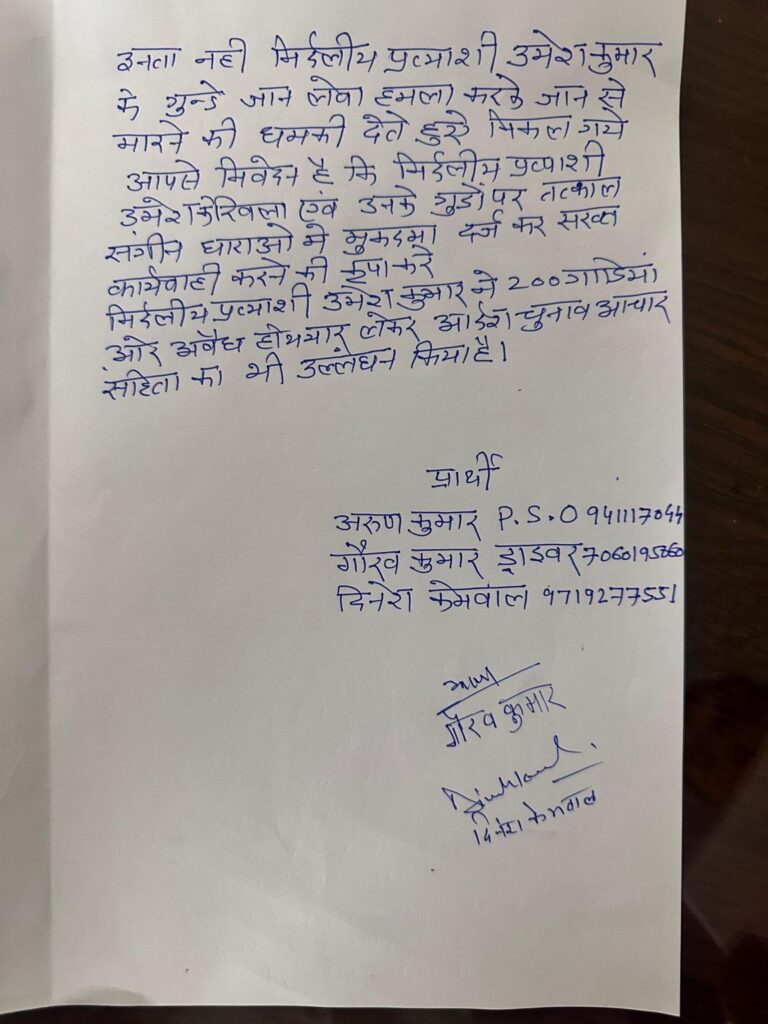 इनता नही निर्दलीय प्रत्याशी उमेश कुमार
के गुन्डे जान लेवा हमला करके जान से
मारने की धमकी देते हुऐ निकल गये
आपसे निवेदन है कि निर्दलीय प्रत्याशी
उमेश एवं उनके गुडों पर तत्काल
संगीन धाराओ मे मुकदमा दर्ज कर सख्त
कार्यवाही करने की कृपा करे
निर्दलीय प्रत्याशी उमेश कुमार ने 200 गाडियां
और अवैध हथियार लेकर आर्दश चुनाव आचार
संहिता का भी उल्लंघन किया है।
प्रार्थी
अरुण कुमार P.S.O 941117044
गौरव कुमार ड्राइवर 7060195860
दिनेश केमवाल 9719277551
गौरव कुमार
दिनेश केमवाल